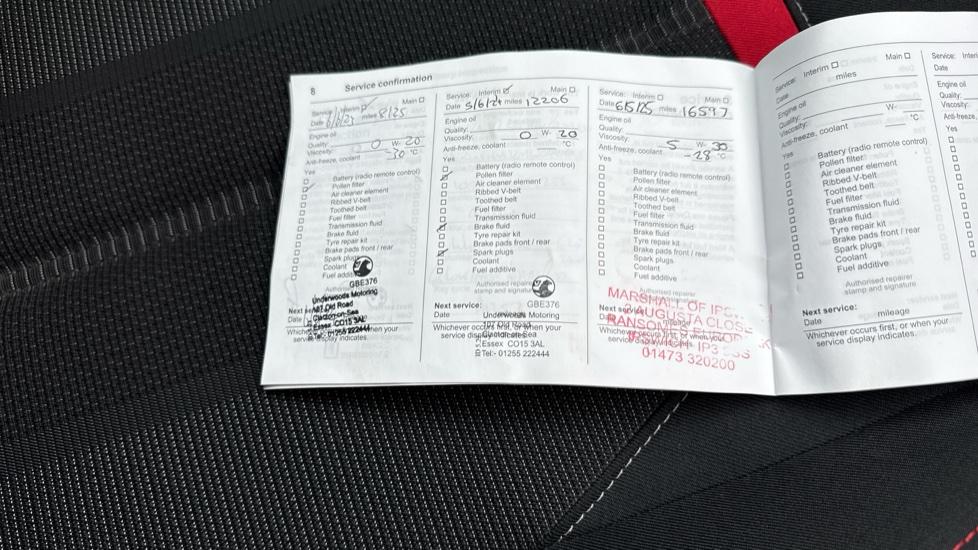 8 Service confirmation
Service: Interim ☑ Main ☐
Date 6/6/23 miles 8125
Engine oil
Quality:
Viscosity: 0 W- 20
Anti-freeze, coolant -30 °C
Yes
Battery (radio remote control)
Pollen filter
Air cleaner element
Ribbed V-belt
Toothed belt
Fuel filter
Transmission fluid
Brake fluid
Tyre repair kit
Brake pads front / rear
Spark plugs
Coolant
Fuel additive
Authorised
GBE376
Underwoods Motoring
107 Old Road
Clacton-on-Sea
Essex CO15 3AL
Tel:- 01255 222444
Next service:
Date
Whichever occurs first, or when your
service display indicates.
Service: Interim ☑ Main ☐
Date 5/6/24 miles 12206
Engine oil
Quality:
Viscosity: 0 W- 20
Anti-freeze, coolant °C
Yes
Battery (radio remote control)
Pollen filter
Air cleaner element
Ribbed V-belt
Toothed belt
Fuel filter
Transmission fluid
Brake fluid
Tyre repair kit
Brake pads front / rear
Spark plugs
Coolant
Fuel additive
Authorised repairer
stamp and signature
GBE376
Next service:
Date
Underwoods Motoring
107 Old Road
Clacton-on-Sea
Essex CO15 3AL
Tel:- 01255 222444
Whichever occurs first, or when your
service display indicates.
Service: Interim ☐ Main ☐
Date 6/5/25 miles 16597
Engine oil
Quality:
Viscosity: 5 W- 30
Anti-freeze, coolant -28 °C
Yes
Battery (radio remote control)
Pollen filter
Air cleaner element
Ribbed V-belt
Toothed belt
Fuel filter
Transmission fluid
Brake fluid
Tyre repair kit
Brake pads front / rear
Spark plugs
Coolant
Fuel additive
Authorised repairer
stamp and signature
MARSHALL OF
AUGUSTA CLOSE
RANSOMES
IP3
01473 320200
Next service:
mileage
Whichever occurs first, or when your
service display indicates.
Service: Interim ☐ Main ☐
Date miles
Engine oil
Quality:
Viscosity: W-
Anti-freeze, coolant °C
Yes
Battery (radio remote control)
Pollen filter
Air cleaner element
Ribbed V-belt
Toothed belt
Fuel filter
Transmission fluid
Brake fluid
Tyre repair kit
Brake pads front / rear
Spark plugs
Coolant
Fuel additive
Authorised repairer
stamp and signature
Next service:
Date mileage
Whichever occurs first, or when your
service display indicates.
Service:
Date
Engine oil
Quality:
Viscosity:
Anti-freeze,
Yes